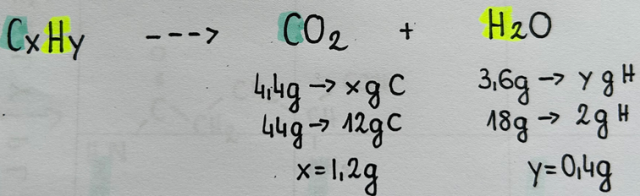 CxHy ---> CO2 + H2O
4,4g → x g C 3,6g → y g H
44g → 12g C 18g → 2g H
x=1,2g y=0,4g